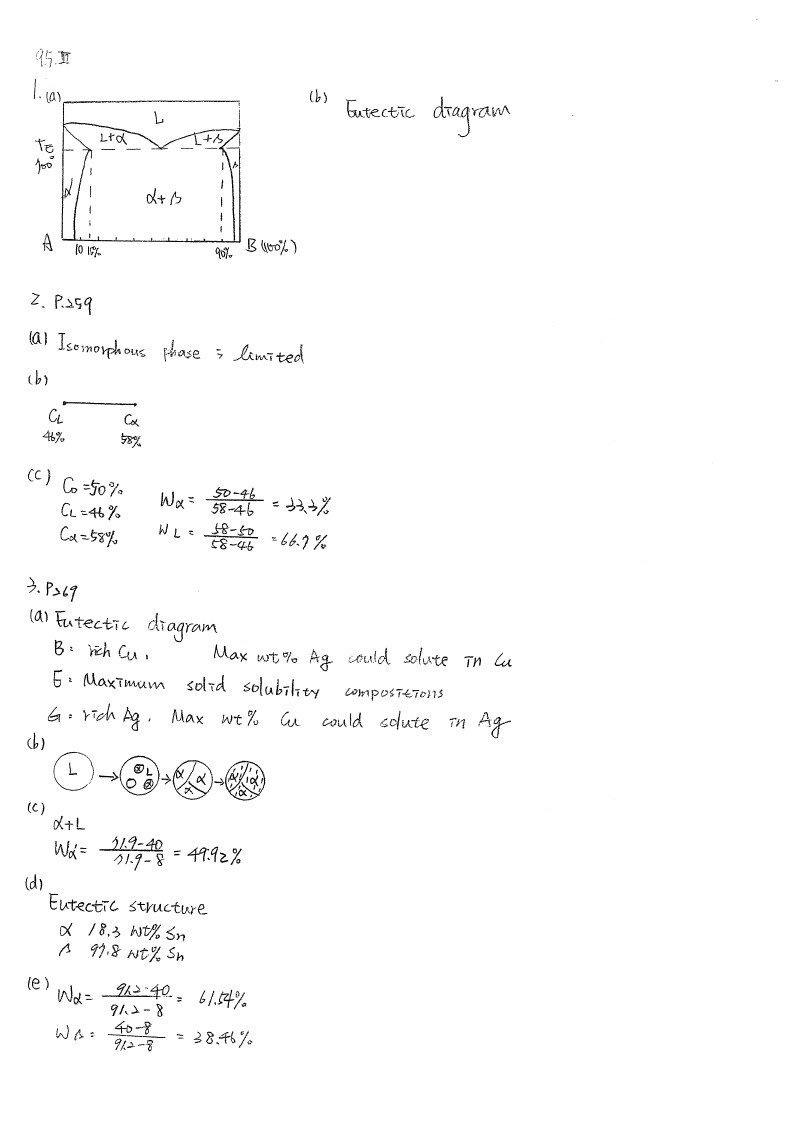 95.III
1. (a)
L
L+α
L+β
TE
700°
α
β
α+β
A
10 15%
90%
B (100%)
(b) Eutectic diagram
2. P.259
(a) Isomorphous phase ; limited
(b)
CL
Cα
46%
58%
(c) C₀=50%
CL=46%
Cα=58%
Wα = 50-46 / 58-46 = 33.3%
WL = 58-50 / 58-46 = 66.7%
3. P269
(a) Eutectic diagram
B: rich Cu, Max wt% Ag could solute in Cu
E: Maximum solid solubility compositions
G: rich Ag. Max wt% Cu could solute in Ag
(b)
L
α L
α
α α
α
α α
α
(c)
α+L
Wα = 71.9-40 / 71.9-8 = 49.92%
(d)
Eutectic structure
α 18.3 wt% Sn
β 97.8 wt% Sn
(e) Wα = 91.2-40 / 91.2-8 = 61.54%
Wβ = 40-8 / 91.2-8 = 38.46%